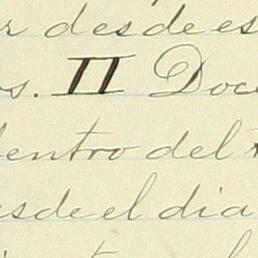 r desde es
os. II Doce
dentro del
esde el dia